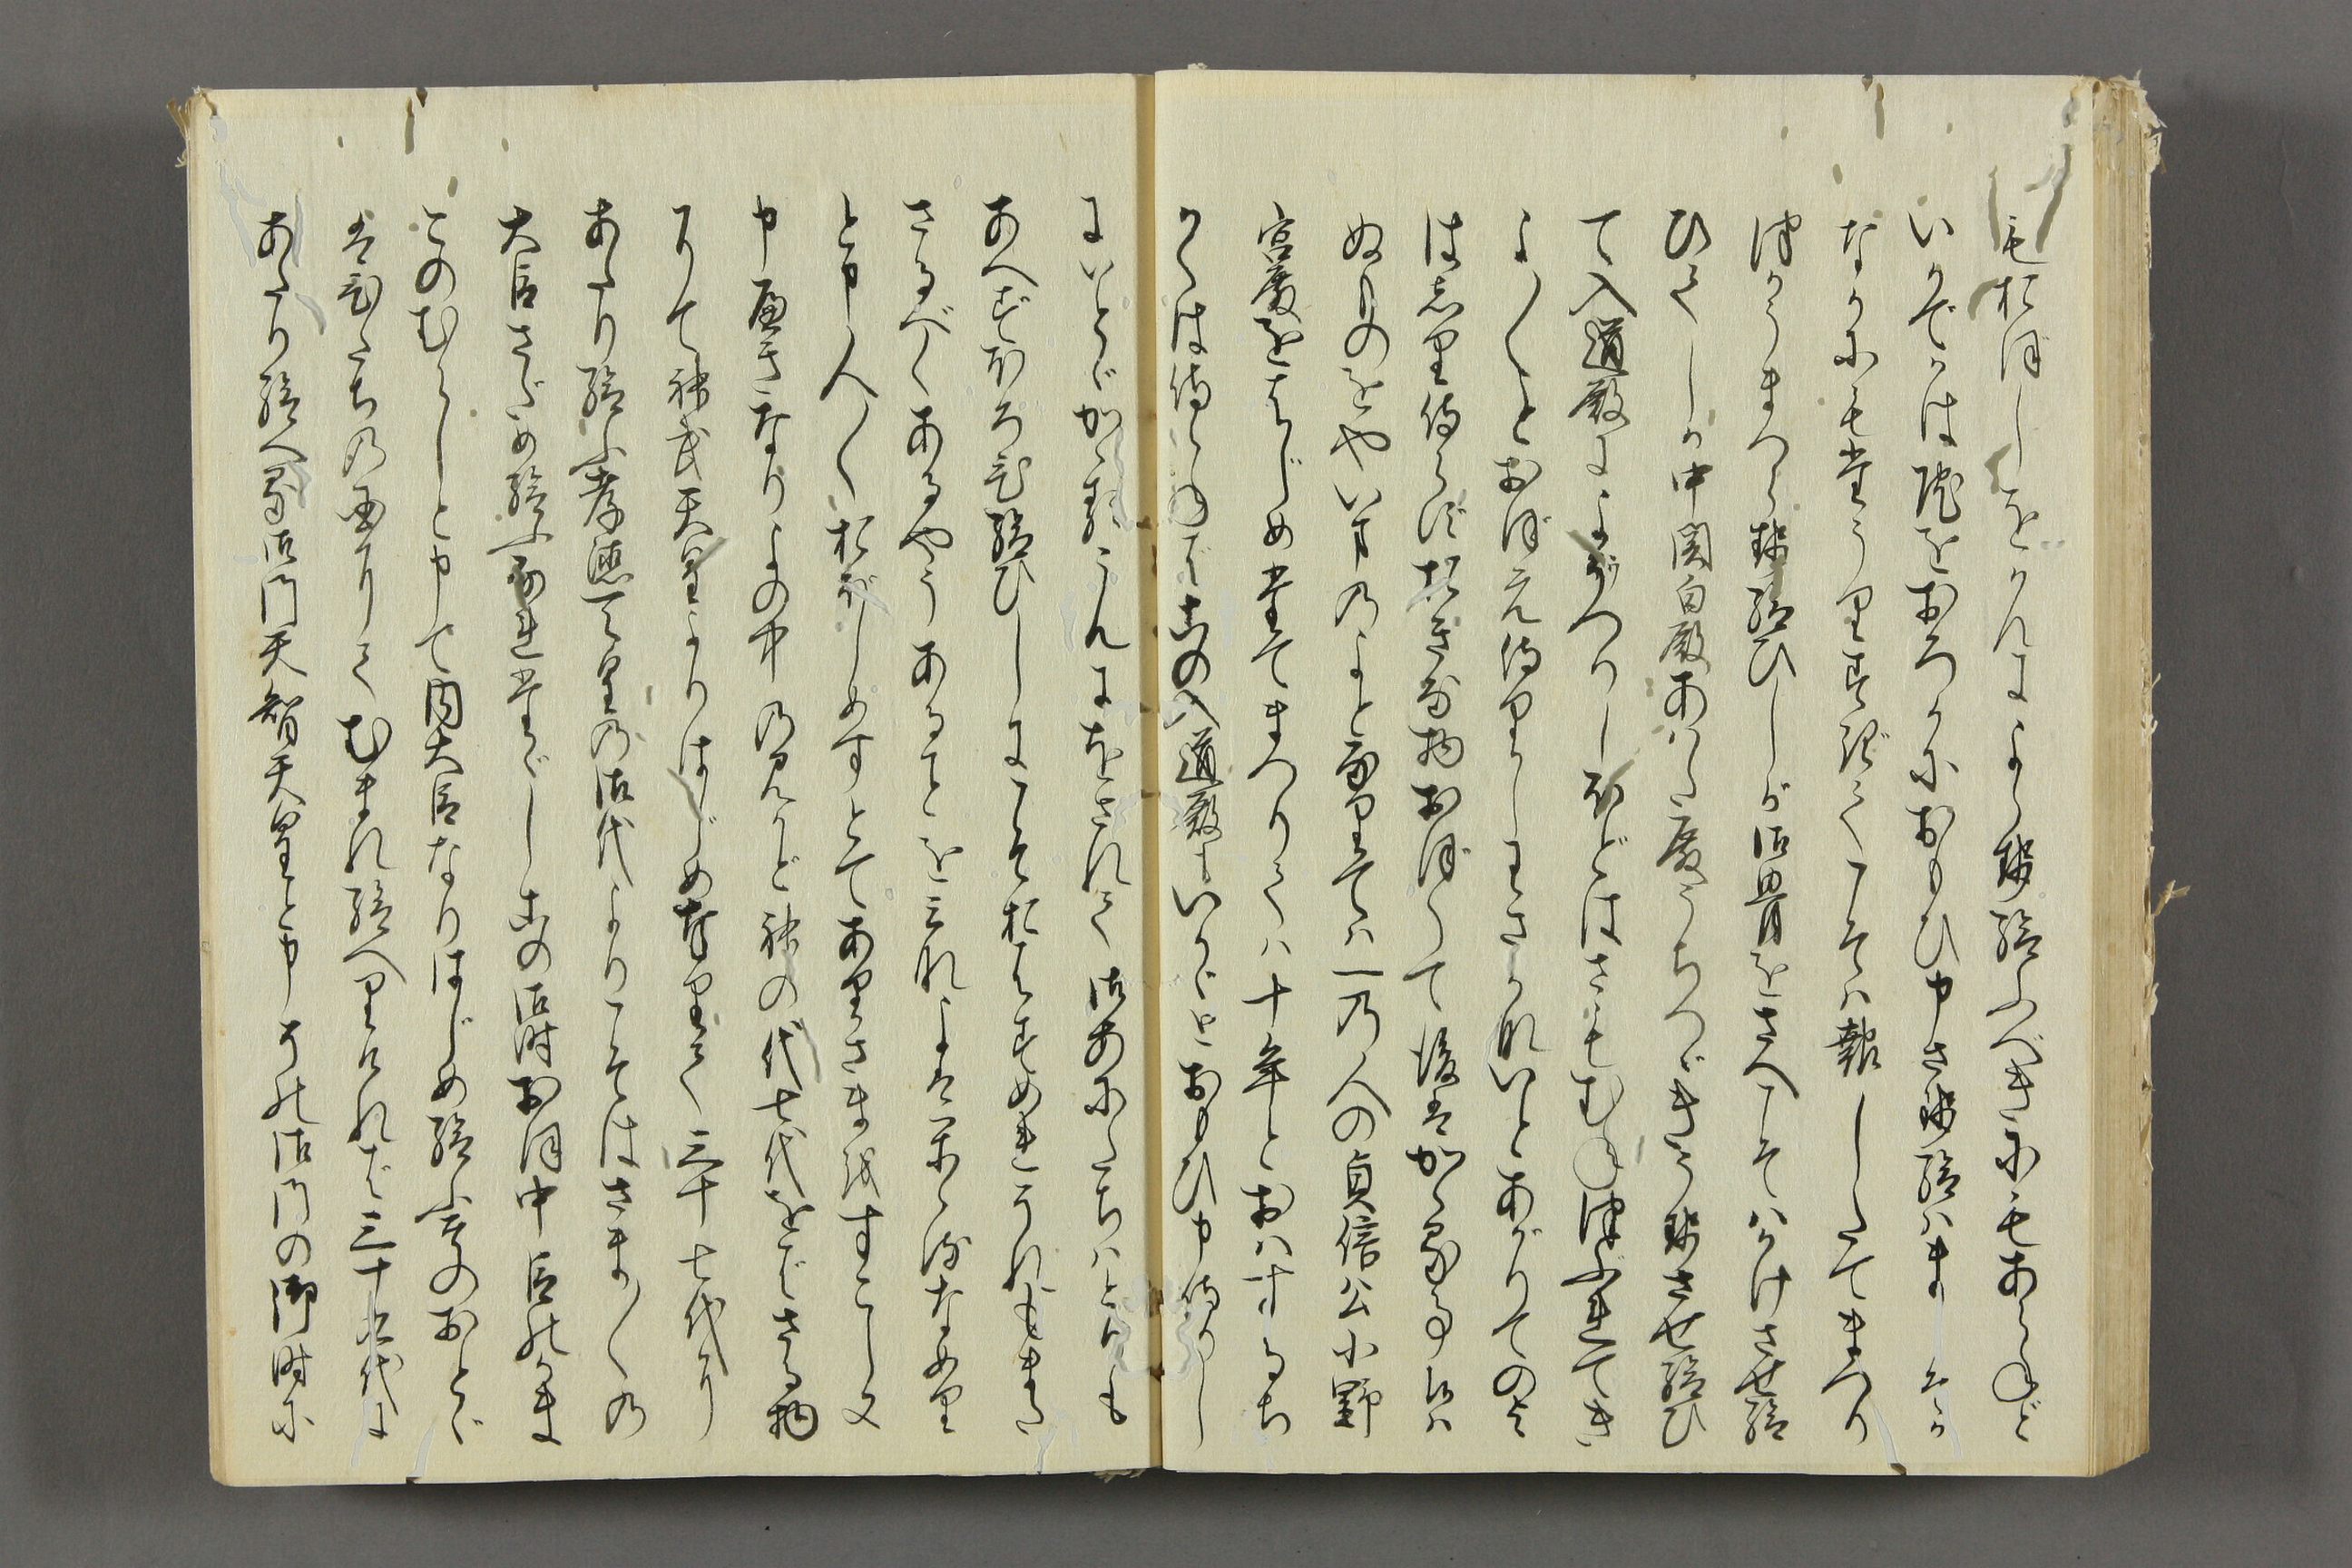 もおぼしをかんによらせ給ふべきにもあらねど
いかでかは院をおろかにおもひ申させ給はまし
なかにもたうりすぎてこそは報したてまつり
つかうまつらせ給ひしが御骨をさへこそはかけさせ給
ひてしか中関白殿あはた殿うちつづきうせさせ給ひ
て入道殿によがうつりしほどはさもむねつぶれてき
よ〳〵とおぼえ侍りしわざかないとあがりてのよ
はしり侍らずおきな物おぼえて後はかゝる事候は
ぬものをやいまのよとなりては一の人の貞信公小野
宮殿をはじめたてまつりては十年とおはするち
かくは侍らねばこの入道殿もいかゞとおもひ申侍りし
にいとゞかゝるうんにをされて御あにたちはとりも
あへずほろび給ひしにこそおはすめれそれもまた
さるべくあるやうあることをみなよはかゝるなめり
とぞ人〳〵おぼしめすとてありさまをすこし又
申べきなりよの中のみかど神の代七代をばさる物
にて神武天皇よりはじめ奉りて三十七代に
あたり給ふ孝徳天皇の御代よりこそはさま〴〵の
大臣さだめ給ふなれたゞしこの御時おほ中臣のかま
このむらじと申て内大臣なりはじめ給ふ其のおとゞ
はひたちの国にてむまれ給へりければ三十九代に
あたり給へる御門天智天皇と申その御門の御時に